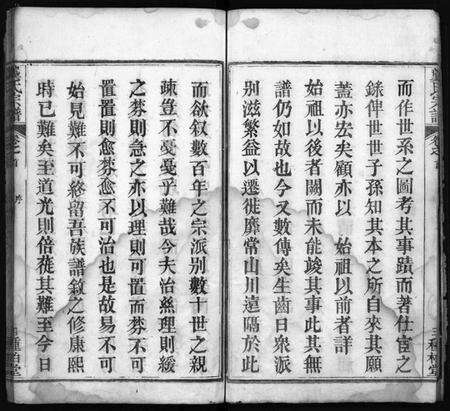 而作世系之圖考其事蹟而著仕宦之
錄俾世世子孫知其本之所自來其願
蓋亦宏矣顧亦以　始祖以前者詳
始祖以後者闕而未能竣其事此其無
譜仍如故也今又數傳矣生齒日衆派
別滋繁益以遷徙靡常山川遠隔於此
而欲叙數百年之宗派別數十世之親
疎豈不憂憂乎難哉今夫治絲理則緩
之棼則急之亦以理則可置而棼不可
置置則愈棼愈不可治也是故易不可
始見難不可終留吾族譜敘之修康熙
時已難矣至道光則倍蓰其難至今日
氏宗譜
卷之首
序
三種柏堂